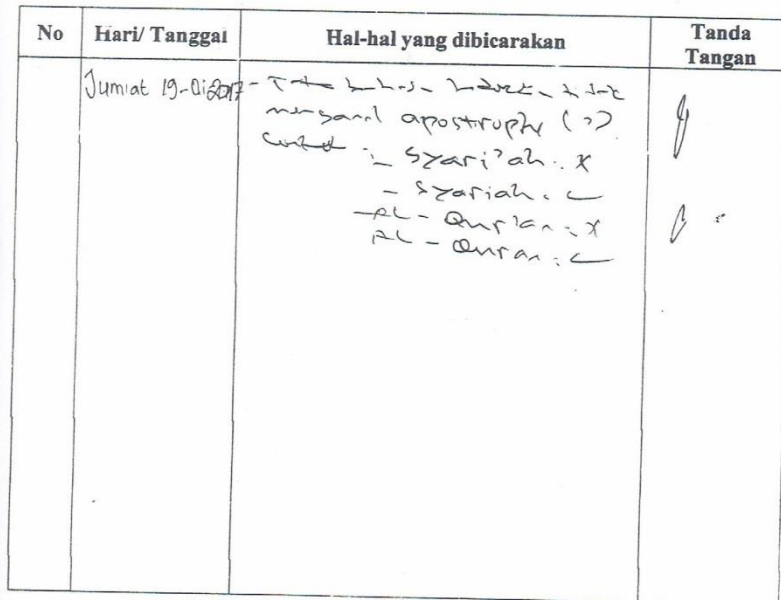 No Hari/ Tanggal Hal-hal yang dibicarakan Tanda Tangan
Jumiat 19-01-2017 - Tata bahasa tidak
mengenal apostrophe (')
Contoh : - Syari'ah. x
- Syariah. ✓
- AL - Qur'an. x
AL - Quran. ✓